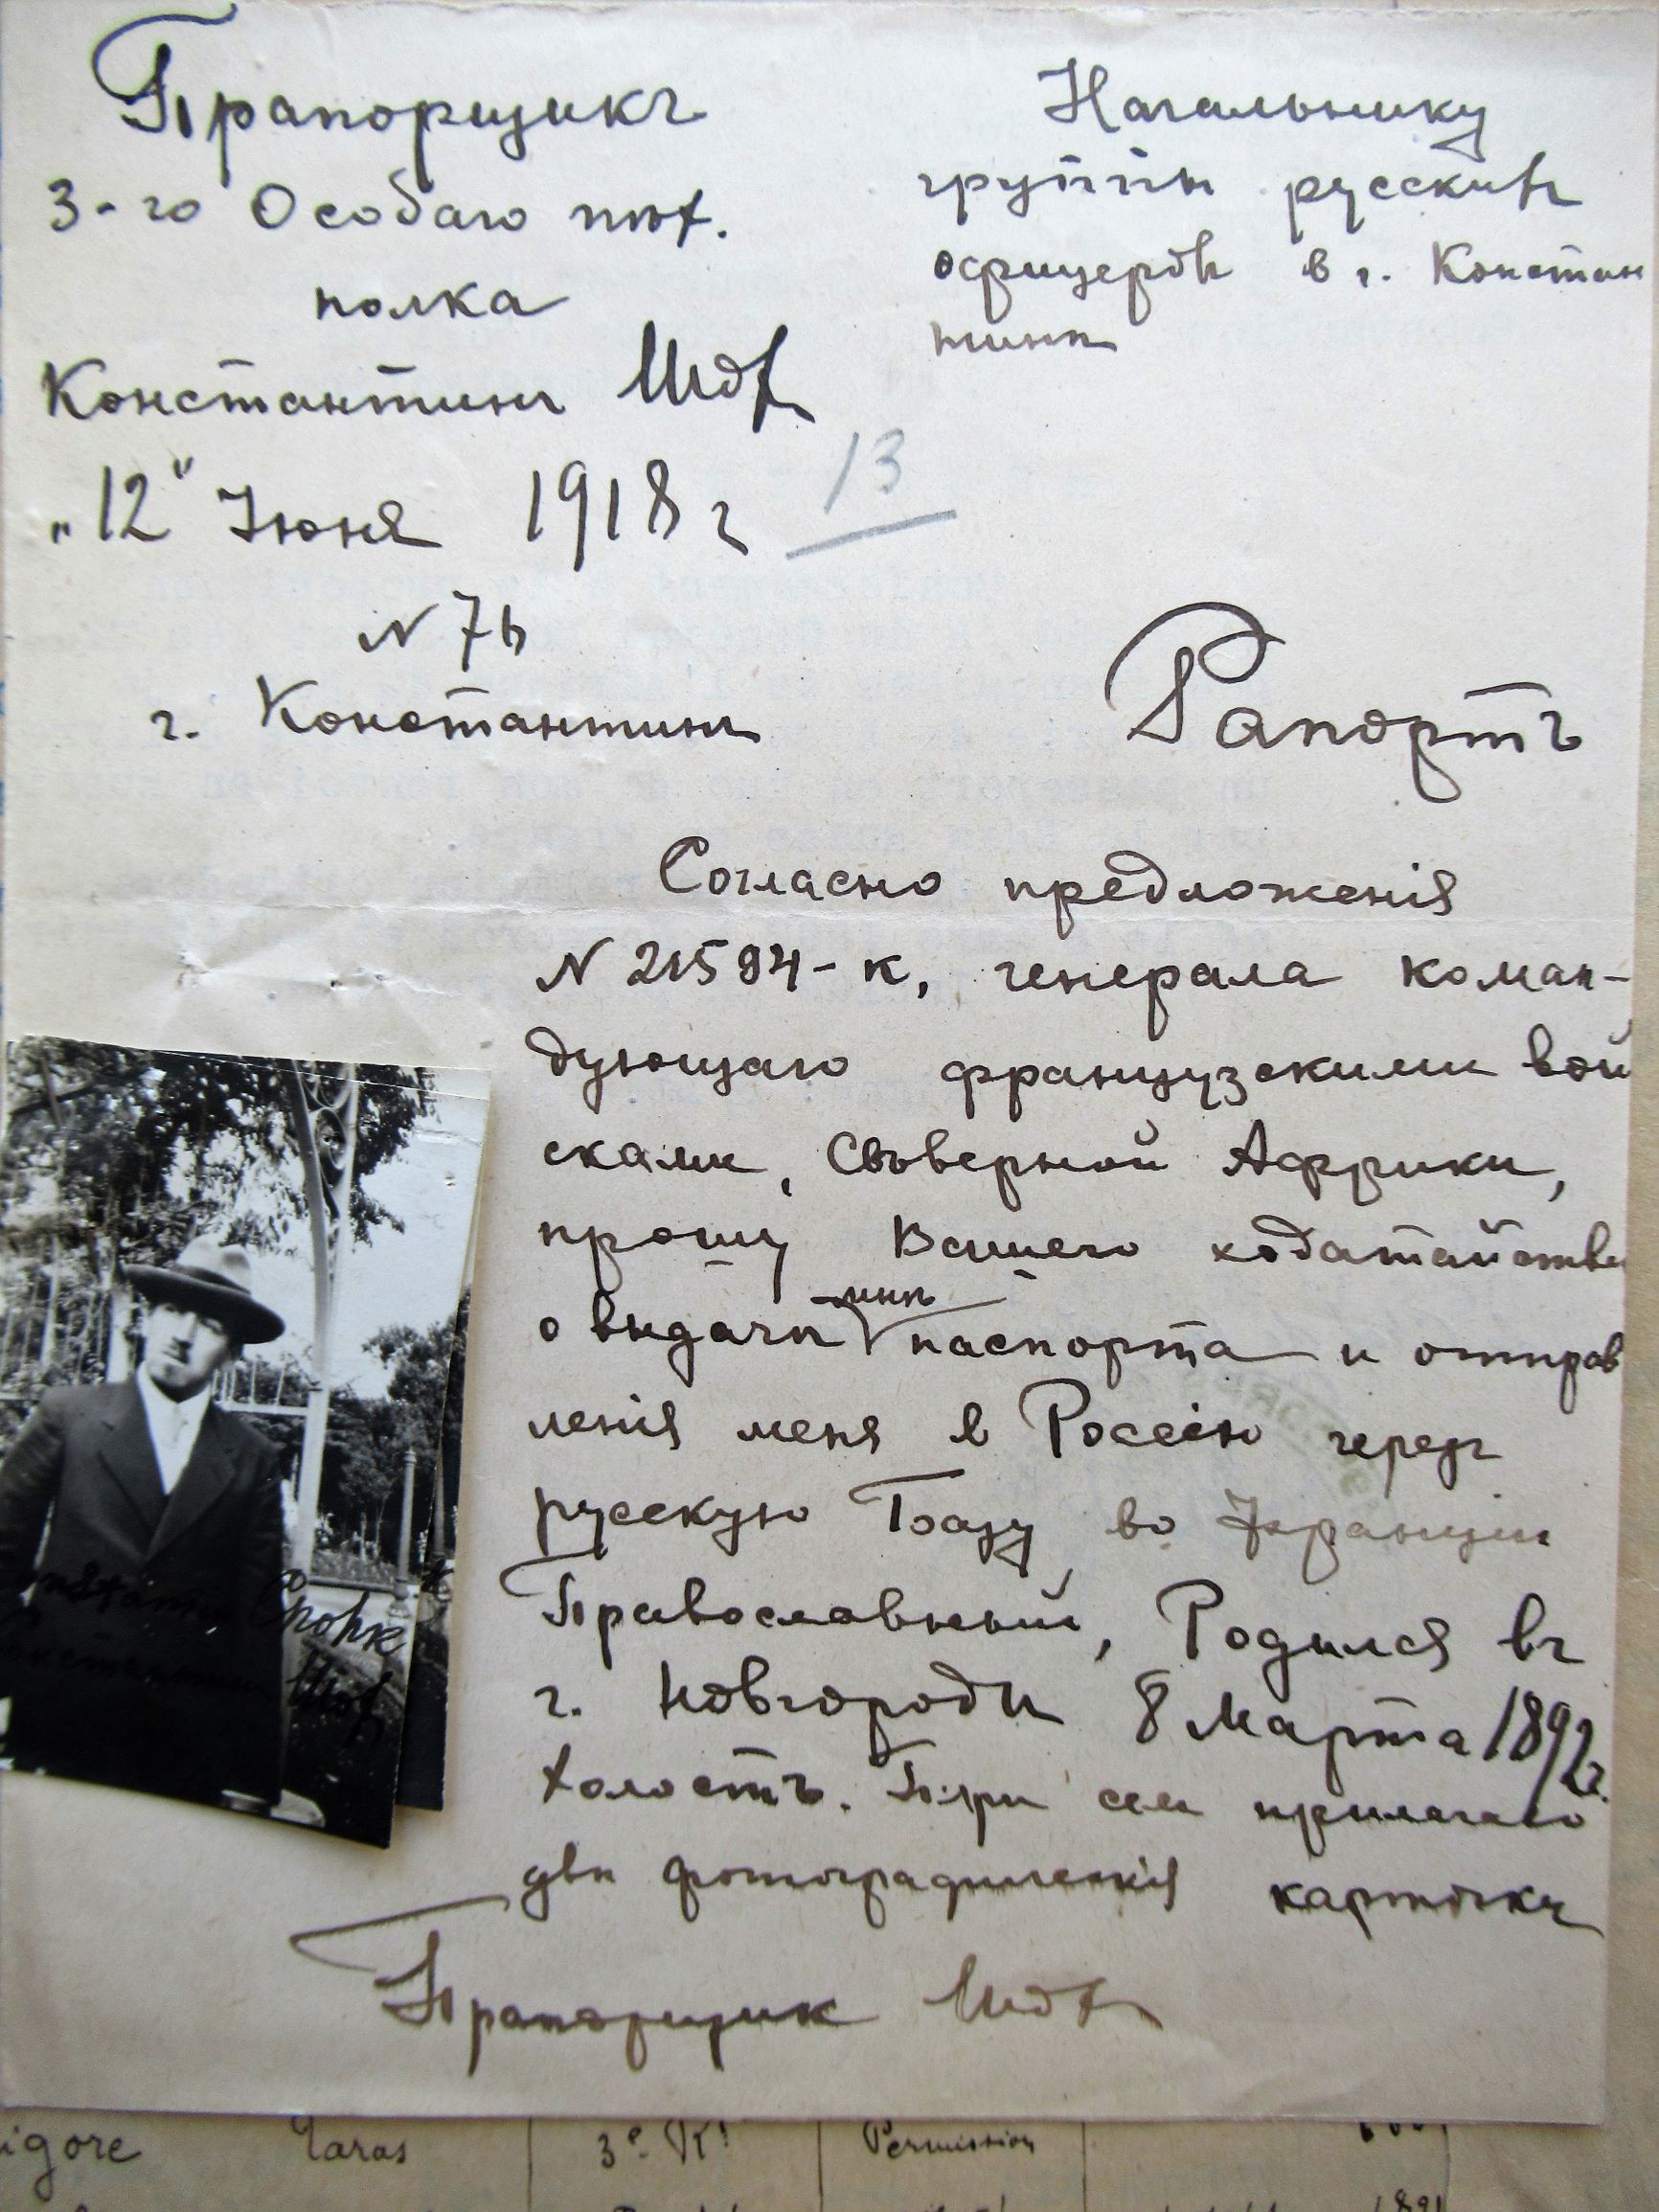 Прапорщикъ
3-го Особаго пѣх.
полка
Константинъ Шох
"12" Іюня 1918 г
N 76
г. Константинѣ
13
Начальнику
группы русскихъ
офицеровъ в г. Констан
тинѣ
Рапортъ
Согласно предложенія
N 21594-к, генерала коман-
дующаго французскими вой
сками, Сѣверной Африки,
прошу Вашего ходатайства
о выдачѣ мнѣ паспорта и отправ
ленія меня в Россію черезъ
русскую Базу во Франціи
Православный, Родился въ
г. Новгородѣ 8 Марта 1892 г.
Холостъ. При сем прилагаю
двѣ фотографическія карточки
Прапорщик Шох
Chohk
Константин Шох
igore Taras 3e Rt Permission
1891